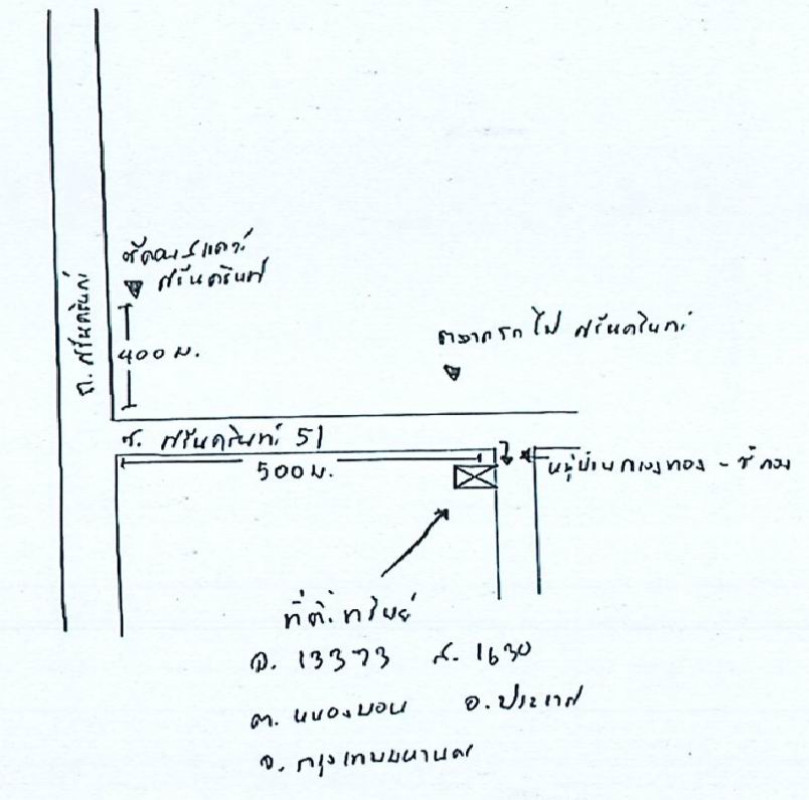 ซีคอนสแควร์
ศรีนครินทร์
ถ. ศรีนครินทร์
400 ม.
ตลาดรถไฟ ศรีนครินทร์
ซ. ศรีนครินทร์ 51
500 ม.
หมู่บ้านเมืองทอง -
ที่ตั้งทรัพย์
ฉ. 13373 ส. 1630
ต. หนองบอน อ. ประเวศ
จ. กรุงเทพมหานคร